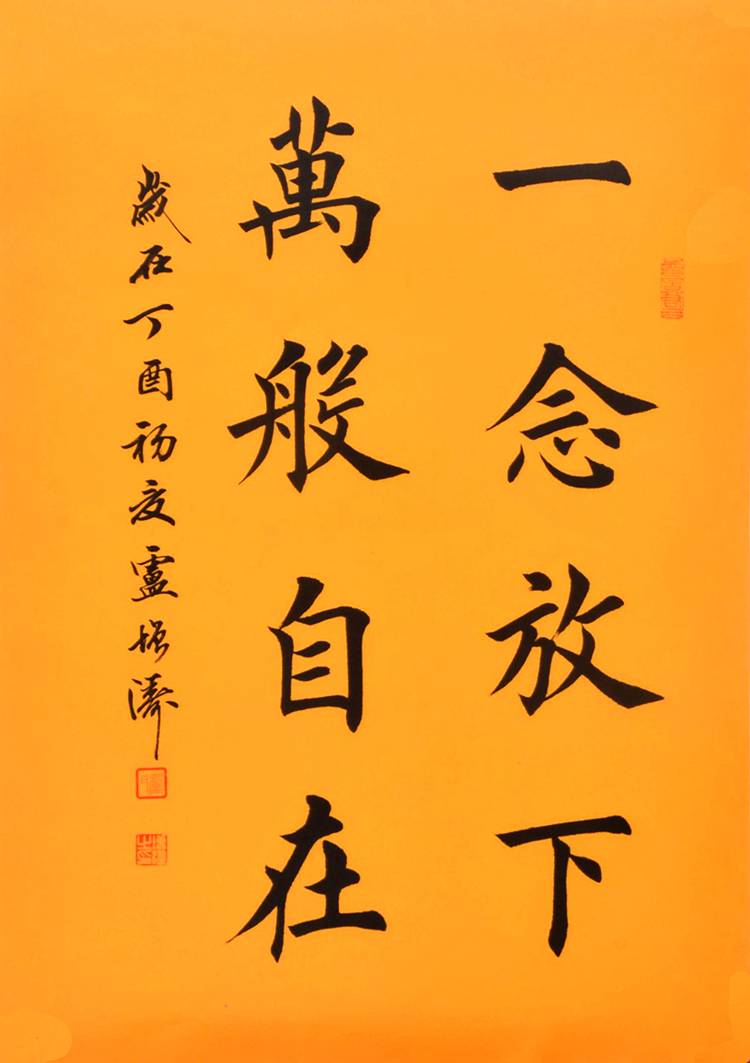 一念放下
萬般自在
歲在丁酉初夏盧增濤